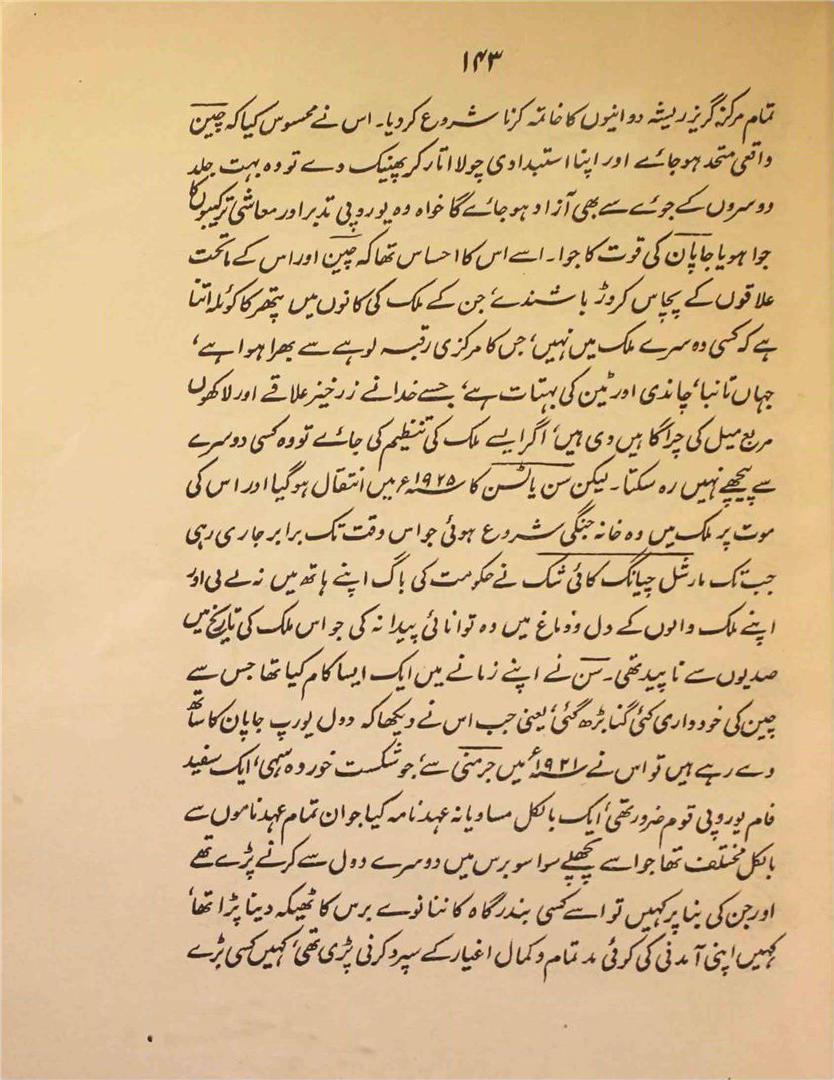 ۱۴۳
تمام مرکز گریز ریشہ دوانیوں کا خاتمہ کرنا شروع کردیا۔ اس نے محسوس کیا کہ چین
واقعی متحد ہوجائے اور اپنا استبدادی چولا اتار کر پھینک دے تو وہ بہت جلد
دوسروں کے جوئے سے بھی آزاد ہوجائے گا خواہ وہ یوروپی تدبر اور معاشی ترکیبوں کا
جوا ہو یا جاپان کی قوت کا جوا۔ اسے اس کا احساس تھا کہ چین اور اس کے ماتحت
علاقوں کے پچاس کروڑ باشندے، جن کے ملک کی کانوں میں پتھر کا کوئلہ اتنا
ہے کہ کسی دوسرے ملک میں نہیں، جس کا مرکزی رقبہ لوہے سے بھرا ہوا ہے،
جہاں تانبا، چاندی اور ٹین کی بہتات ہے، جسے خدا نے زرخیز علاقے اور لاکھوں
مربع میل کی چراگاہیں دی ہیں، اگر ایسے ملک کی تنظیم کی جائے تو وہ کسی دوسرے
سے پیچھے نہیں رہ سکتا۔ لیکن سن یاٹسن کا ۱۹۲۵ء میں انتقال ہوگیا اور اس کی
موت پر ملک میں وہ خانہ جنگی شروع ہوئی جو اس وقت تک برابر جاری رہی
جب تک مارشل چیانگ کائی شک نے حکومت کی باگ اپنے ہاتھ میں نہ لے لی اور
اپنے ملک والوں کے دل و دماغ میں وہ توانائی پیدا نہ کی جو اس ملک کی تاریخ میں
صدیوں سے ناپید تھی۔ سن نے اپنے زمانے میں ایک ایسا کام کیا تھا جس سے
چین کی خودداری کئی گنا بڑھ گئی، یعنی جب اس نے دیکھا کہ دول یورپ جاپان کا ساتھ
دے رہے ہیں تو اس نے ۱۹۲۱ء میں جرمنی سے، جو شکست خوردہ سہی، ایک سفید
فام یوروپی قوم ضرور تھی، ایک بالکل مساویانہ عہدنامہ کیا جو ان تمام عہدناموں سے
بالکل مختلف تھا جو اسے پچھلے سوا سو برس میں دوسرے دول سے کرنے پڑے تھے
اور جن کی بنا پر کہیں تو اسے کسی بندرگاہ کا ننانوے برس کا ٹھیکہ دینا پڑا تھا،
کہیں اپنی آمدنی کی کوئی مد تمام و کمال اغیار کے سپرد کرنی پڑی تھی، کہیں کسی بڑے